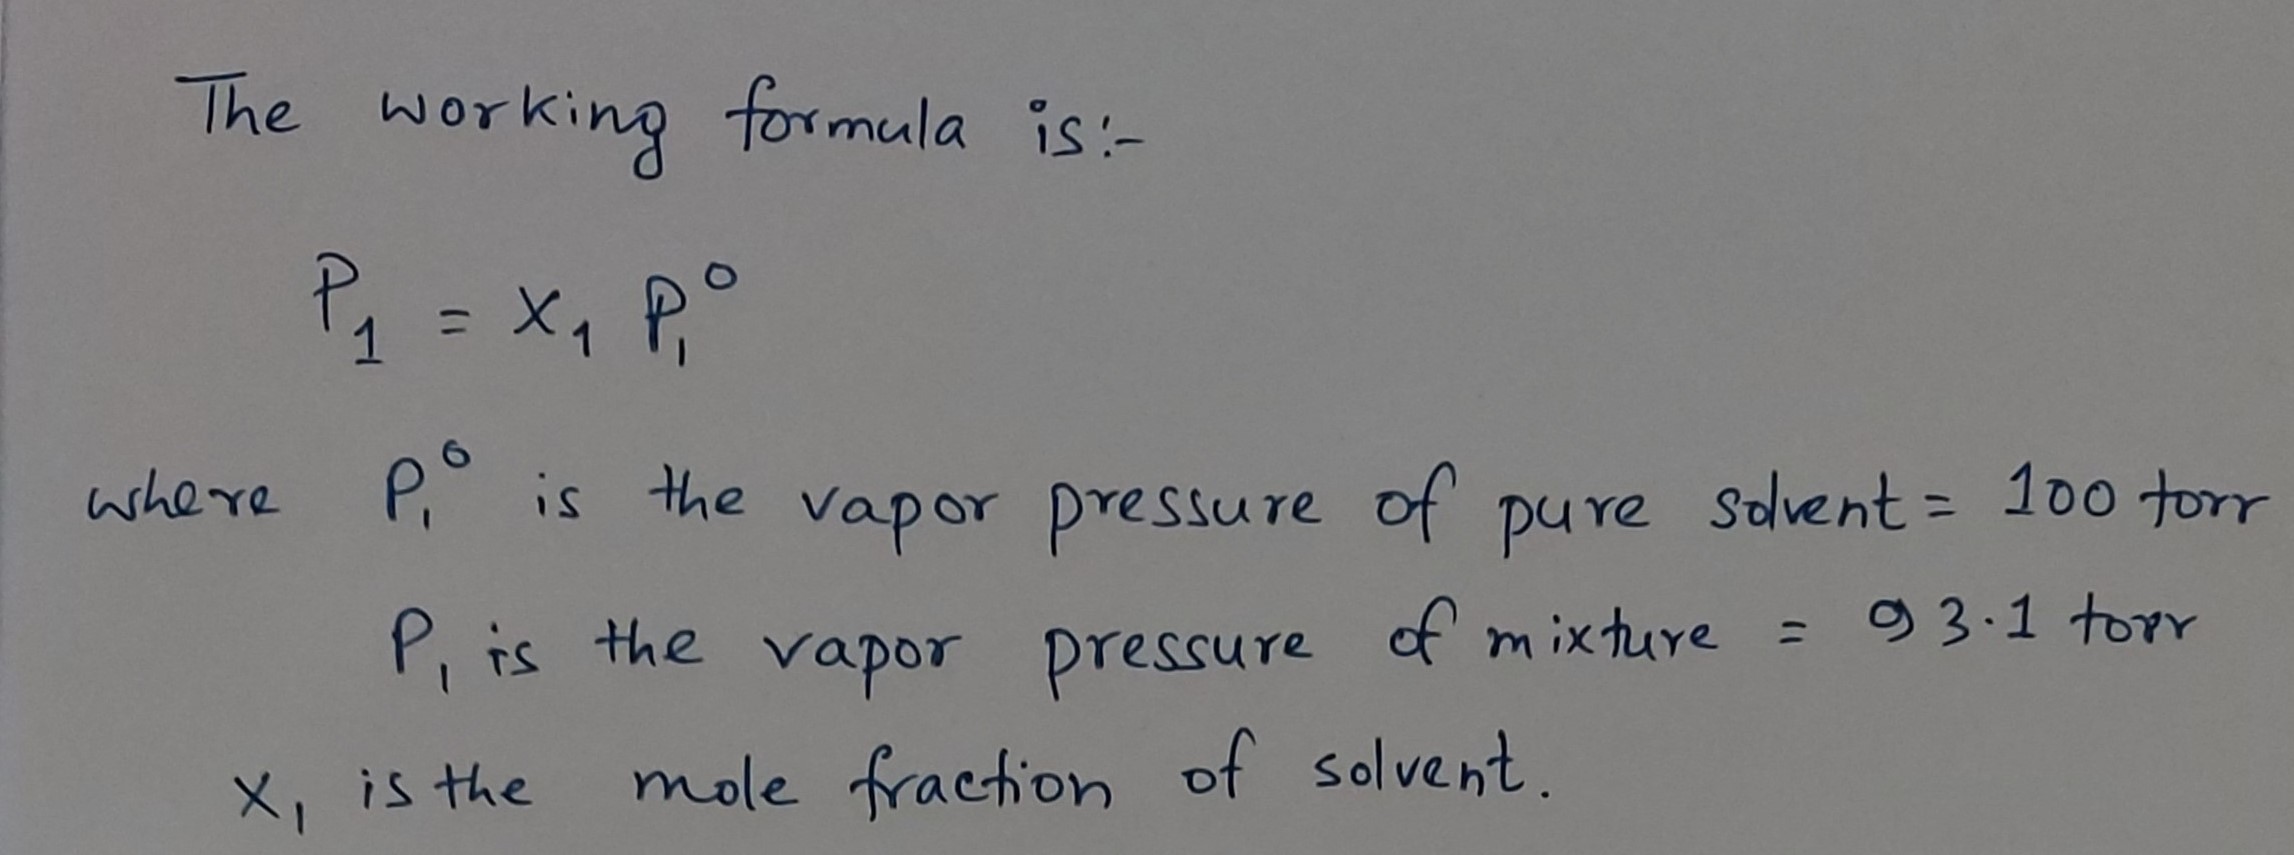 The working formula is:-
P₁ = X₁ P₁⁰
where P₁⁰ is the vapor pressure of pure solvent = 100 torr
P₁ is the vapor pressure of mixture = 93.1 torr
X₁ is the mole fraction of solvent.